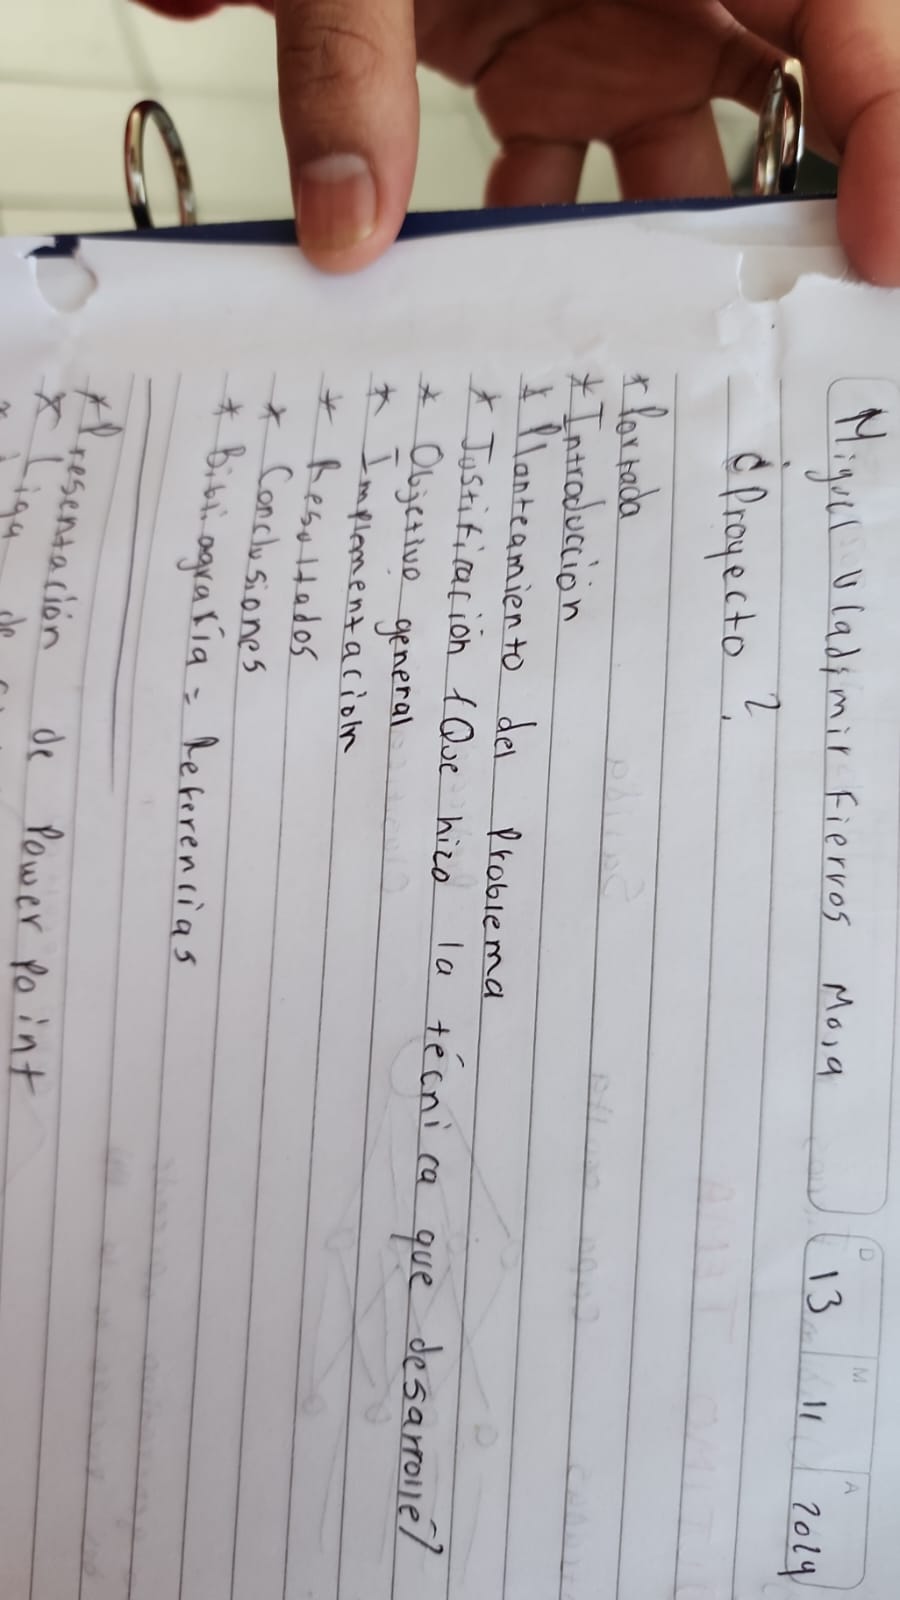 Miguel Vladimir Fierros Mora
D 13 M 11 A 2024
¿Proyecto?
* Portada
* Introducción
* Planteamiento del Problema
* Justificación ¿Que hizo la técnica que desarrollé?
* Objetivo general
* Implementación
* Resultados
* Conclusiones
* Bibliografía = Referencias
* Presentación de Power Point
* Liga de